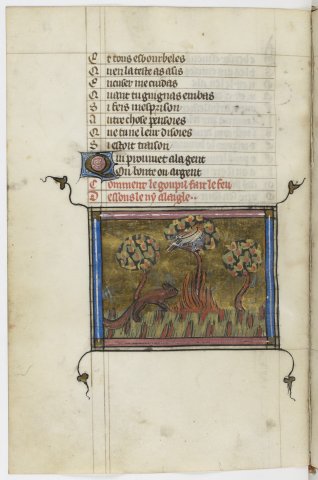 E t tous esbourbeles
Q uen la teste as asis
E ncuser me cuidas
Q uant tu guignas embas
S i feis mesprison
A utre chose pensoies
Q ue tu ne leur disoies
S i estoit traison
Q ui prouuet a la gent
Qu honte ou argent
C omment le goupil fait le feu
D essous le ny a laigle